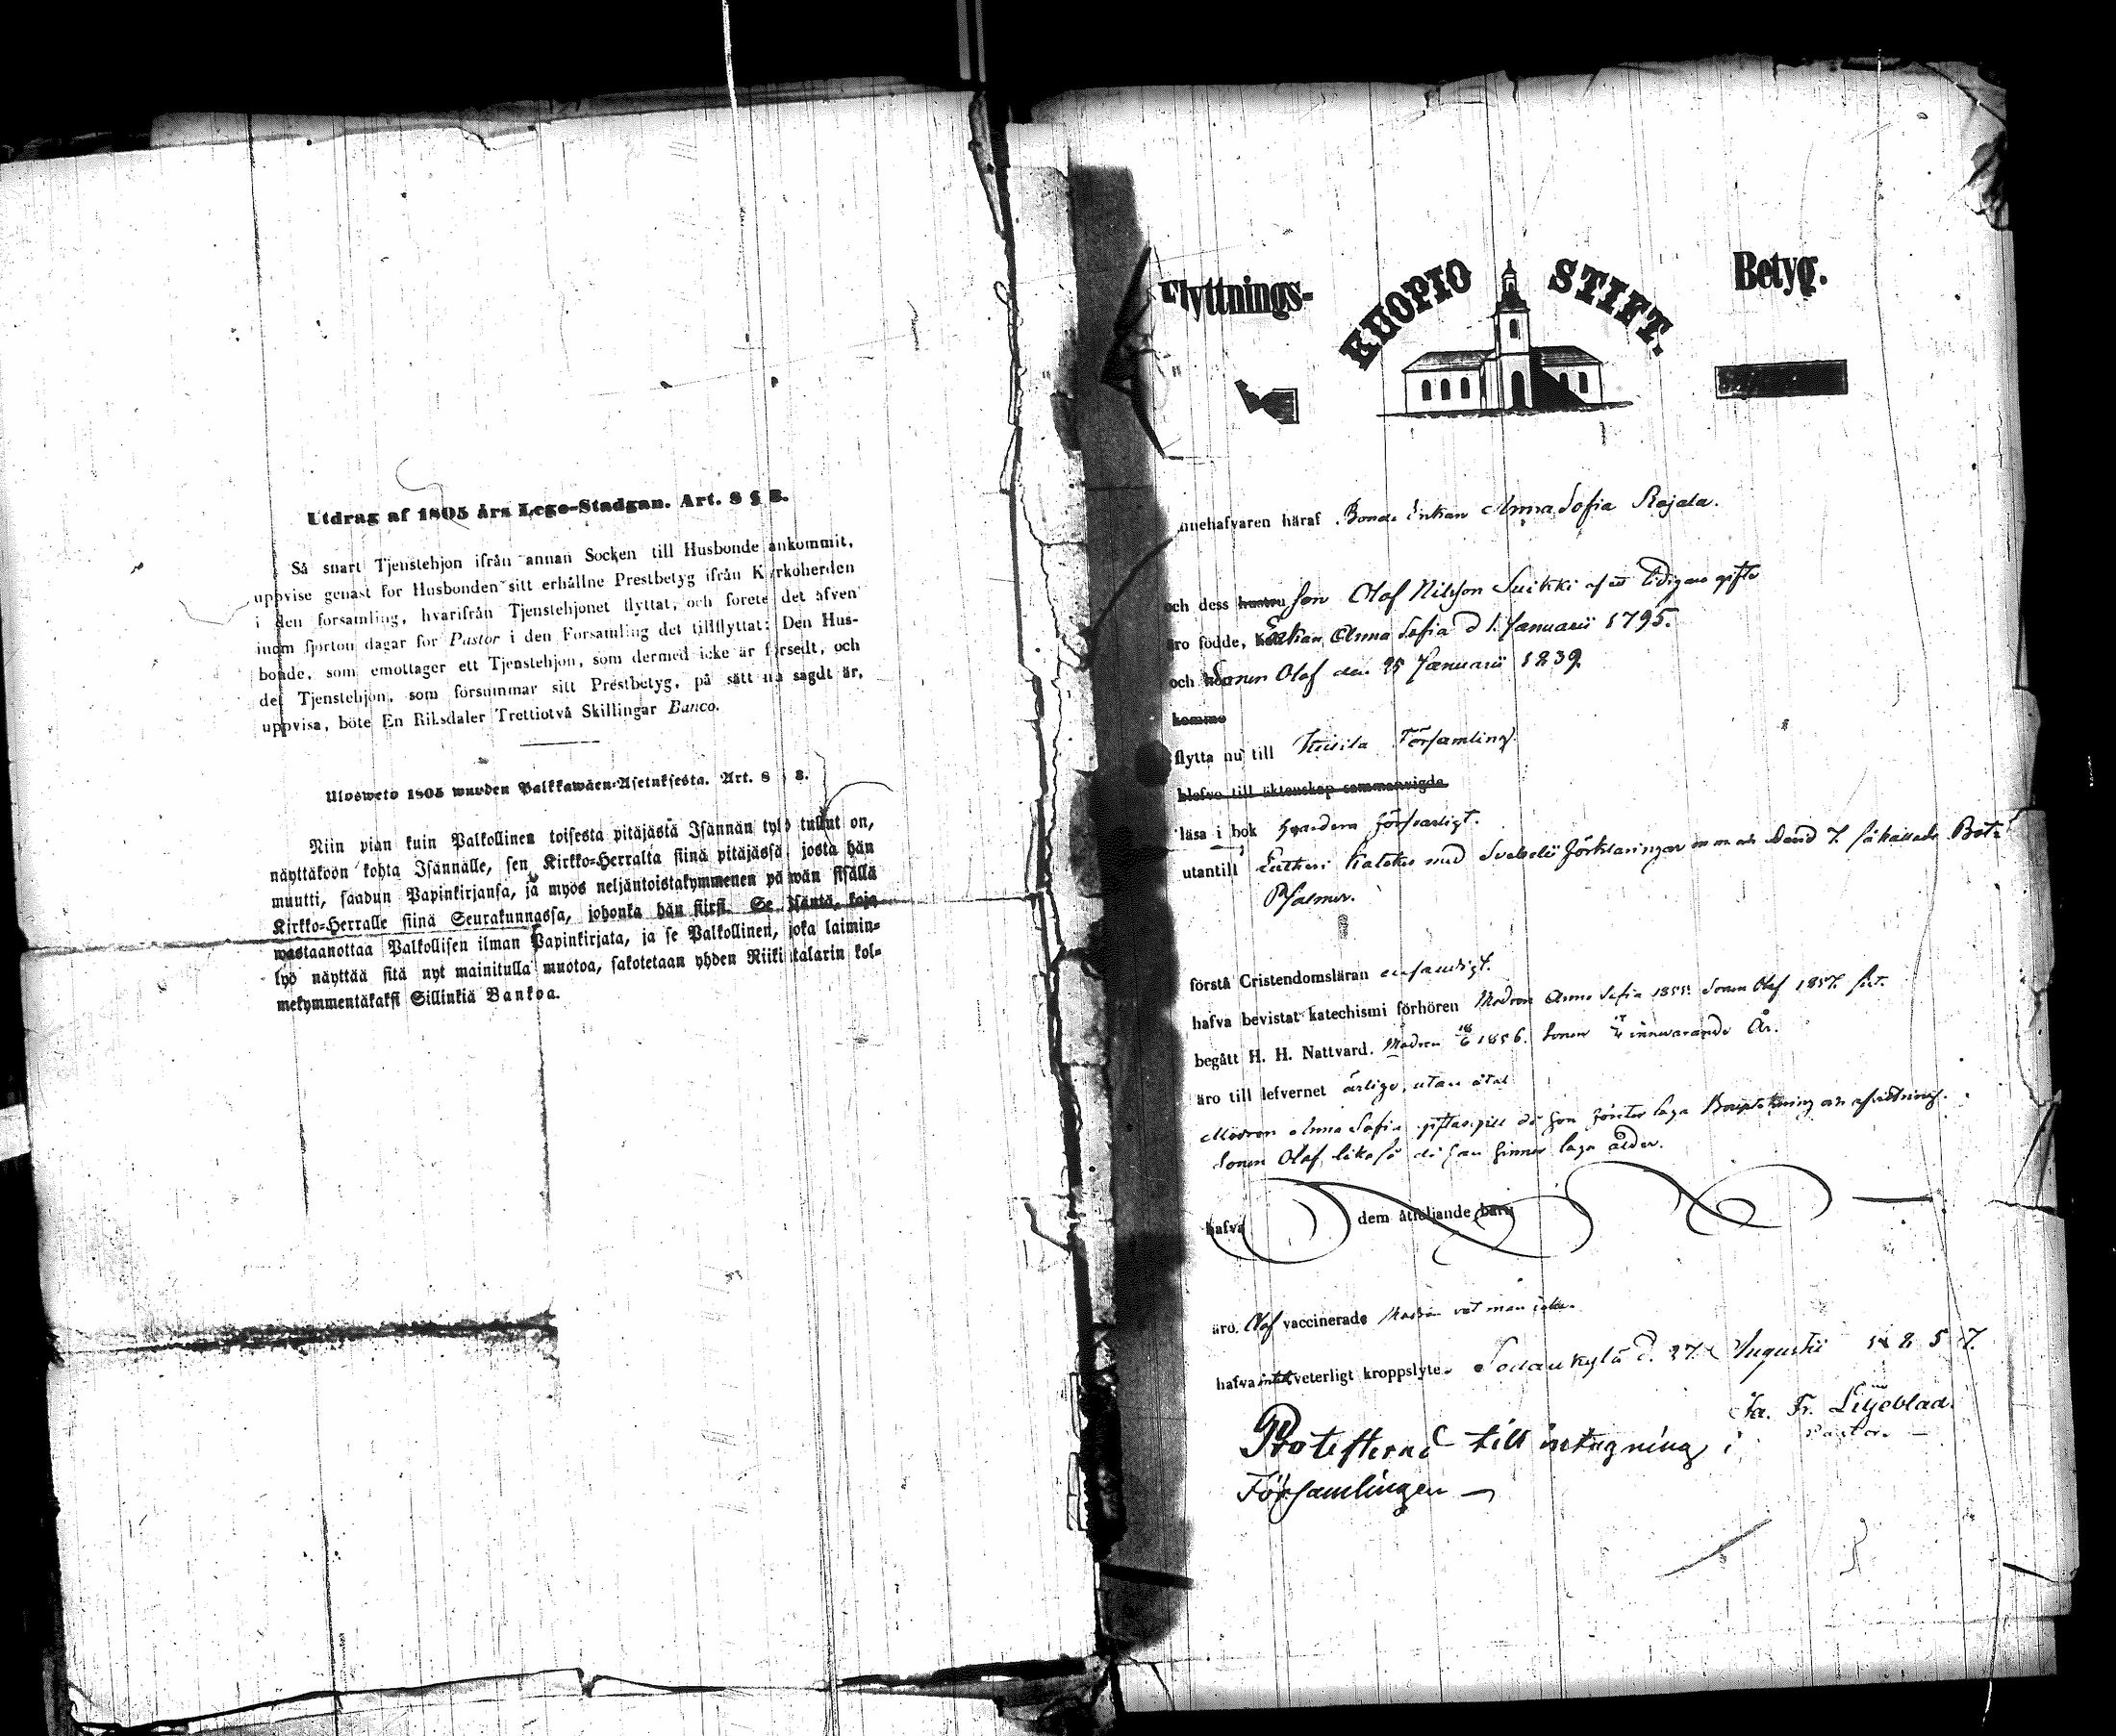 Utdrag af 1805 års Lego-Stadgan. Art. 8 § 3.
Så snart Tjenstehjon ifrån annan Socken till Husbonde ankommit,
uppvise genast för Husbonden sitt erhållne Prestbetyg ifrån Kyrkoherden
i den församling, hvarifrån Tjenstehjonet flyttat, och förete det äfven
inom fjorton dagar för Pastor i den Församling det tillflyttat: Den Hus-
bonde, som emottager ett Tjenstehjon, som dermed icke är försedt, och
det Tjenstehjon, som försummar sitt Prestbetyg, på sätt nu sagdt är,
uppvisa, böte En Riksdaler Trettiotvå Skillingar Banco.
Ulosweto 1805 wuoden Palkkawäen-Asetuksesta. Art. 8 § 3.
Niin pian kuin Palkollinen toisesta pitäjästä Isännän tykö tullut on,
näyttäköön kohta Isännälle, sen Kirkko-Herralta siinä pitäjässä, josta hän
muutti, saadun Papinkirjansa, ja myös neljäntoistakymmenen päiwän sisällä
Kirkko-Herralle siinä Seurakunnassa, johonka hän siirsi. Se Isäntä, koja
wastaanottaa Palkollisen ilman Papinkirjata, ja se Palkollinen, joka laimin-
lyö näyttää sitä nyt mainitulla muotoa, sakotetaan yhden Riikintalarin kol-
mekymmentäkaksi Sillinkiä Bankoa.
Flyttnings- KUOPIO STIFT. Betyg.
innehafvaren häraf Bonde Enkan Anna Sofia Rajala.
och dess hustru son Olof Nilsson Suikki af ett tidigare gifte
äro födde, Enkan Anna Sofia d 1. Januarii 1795.
och Sonen Olof den 25 Januarii 1839.
komme
flytta nu till Församling.
blefvo till äktenskap sammanvigde
läsa i bok hvardera försvarligt.
utantill Lutheri Kateches med Svebelii förklaringar m m och David 7. så kallade Bot-
Psalmer.
förstå Cristendomsläran enfaldigt.
hafva bevistat katechismi förhören Modren Anna Sofia 1855. Sonen Olof 1857.
begått H. H. Nattvard. Modren 1856. Sonen innevarande År.
äro till lefvernet ärlige, utan åtal
Modren Anna Sofia giftasgill då hon företer laga Bouptekning och afvittning.
Sonen Olof likaså då han hinner laga ålder.
hafva dem åtföljande barn
äro. Olof vaccinerade Modren vet man icke.
hafva intet veterligt kroppslyte. Sodankylä d. 27. Augustii 1857.
Ja. Fr. Liljeblad.
Pastor.
till intagning i
Församlingen